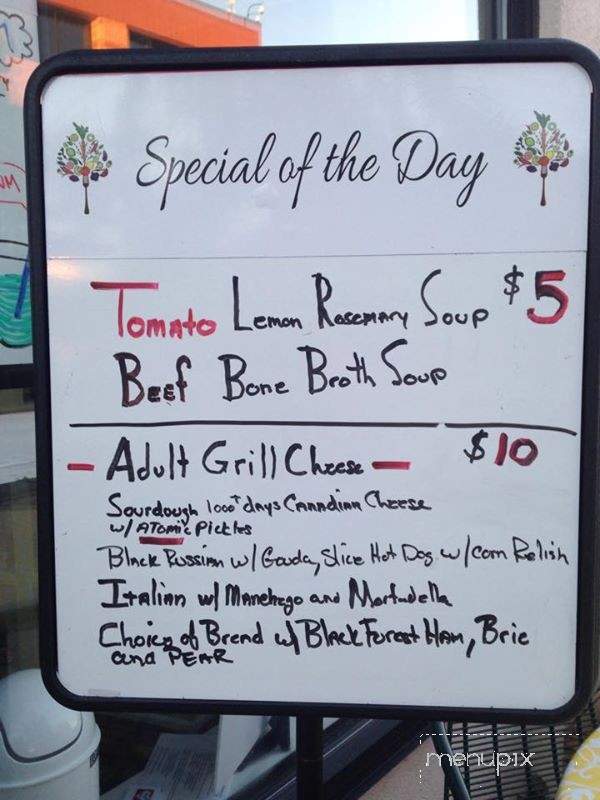 Special of the Day
Tomato Lemon Rosemary Soup $5
Beef Bone Broth Soup
- Adult Grill Cheese - $10
Sourdough 1000+ days Cannadian Cheese
w/ ATomic Pickles
Black Russian w/ Gouda, Slice Hot Dog w/ corn Relish
Italian w/ Manchego and Mortadella
Choice of Bread w/ Black Forest Ham, Brie
and PEAR
menupix